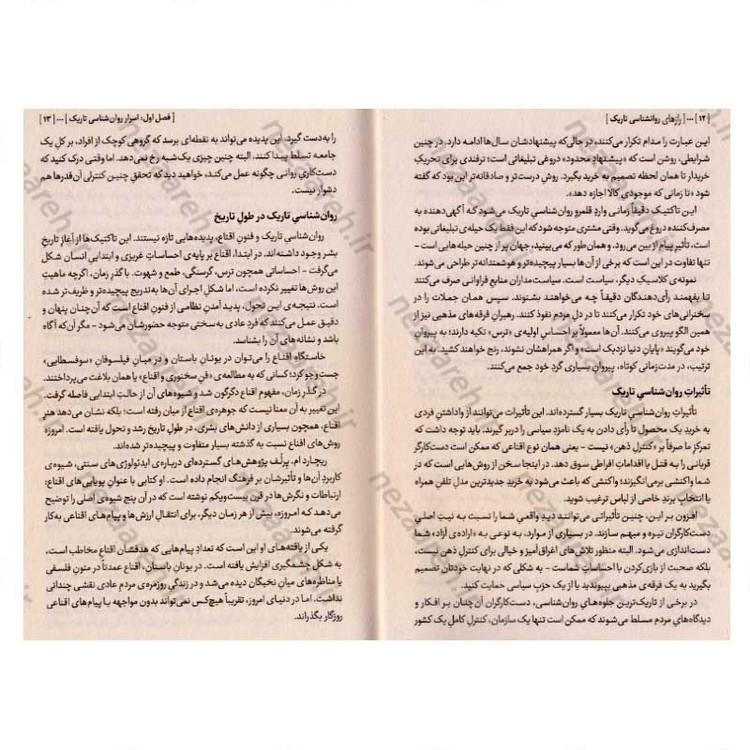 [ ۱۲ ] ••• [ رازهای روانشناسی تاریک ]
این عبارت را مدام تکرار می‌کنند، در حالی‌که پیشنهادشان سال‌ها ادامه دارد. در چنین
شرایطی، روشن است که «پیشنهادِ محدود» دروغی تبلیغاتی است؛ ترفندی برای تحریکِ
خریدار تا همان لحظه تصمیم به خرید بگیرد. روشِ درست‌تر و صادقانه‌تر این بود که گفته
شود «تا زمانی که موجودیِ کالا اجازه دهد».
این تاکتیک دقیقاً زمانی واردِ قلمروِ روان‌شناسیِ تاریک می‌شود که آگهی‌دهنده به
مصرف‌کننده دروغ می‌گوید. وقتی مشتری متوجه شود که این فقط یک حیله‌ی تبلیغاتی بوده
است، تأثیرِ پیام از بین می‌رود. و همان‌طور که می‌بینید، جهان پر از چنین حیله‌هایی است –
تنها تفاوت در این است که برخی از آن‌ها بسیار پیچیده‌تر و هوشمندانه‌تر طراحی می‌شوند.
نمونه‌ی کلاسیکِ دیگر، سیاست است. سیاست‌مداران منابع فراوانی صرف می‌کنند
تا بفهمند رأی‌دهندگان دقیقاً چه می‌خواهند بشنوند. سپس همان جملات را در
سخنرانی‌های خود تکرار می‌کنند تا در دلِ مردم نفوذ کنند. رهبرانِ فرقه‌های مذهبی نیز از
همین الگو پیروی می‌کنند. آن‌ها معمولاً بر احساسِ اولیه‌ی «ترس» تکیه دارند؛ به پیروانِ
خود می‌گویند «پایانِ دنیا نزدیک است» و اگر همراهشان نشوند، رنج خواهند کشید. به این
ترتیب، در مدت‌زمانی کوتاه، پیروانِ بسیاری گردِ خود جمع می‌کنند.
تأثیراتِ روان‌شناسیِ تاریک
تأثیراتِ روان‌شناسیِ تاریک بسیار گسترده‌اند. این تأثیرات می‌توانند از واداشتنِ فردی
به خریدِ یک محصول تا رأی دادن به یک نامزدِ سیاسی را دربر گیرند. باید توجه داشت که
تمرکزِ ما صرفاً بر «کنترلِ ذهن» نیست – یعنی همان نوع اقناعی که ممکن است دست‌کارگر
قربانی را به قتل یا اقداماتِ افراطی سوق دهد. در اینجا سخن از روش‌هایی است که در
شما واکنشی برمی‌انگیزند؛ واکنشی که باعث می‌شود به خریدِ جدیدترین مدلِ تلفن همراه
یا انتخابِ برندِ خاصی از لباس ترغیب شوید.
افزون بر این، چنین تأثیراتی می‌توانند دیدِ واقعیِ شما را نسبت به نیتِ اصلیِ
دست‌کارگران تیره و مبهم سازند. در بسیاری از موارد، به نوعی به «اراده‌ی آزاد» شما
دست‌اندازی می‌شود. البته منظور تلاش‌های اغراق‌آمیز و خیالی برای کنترلِ ذهن نیست،
بلکه صحبت از بازی‌کردن با احساساتِ شماست – به شکلی که در نهایت خودتان تصمیم
بگیرید به یک فرقه‌ی مذهبی بپیوندید یا از یک حزبِ سیاسی حمایت کنید.
در برخی از تاریک‌ترین جلوه‌های روان‌شناسی، دست‌کارگران آن‌چنان بر افکار و
دیدگاه‌های مردم مسلط می‌شوند که ممکن است تنها یک سازمان، کنترلِ کاملِ یک کشور
[ فصل اول: اسرار روان‌شناسی تاریک ] ••• [ ۱۳ ]
را به‌دست گیرد. این پدیده می‌تواند به نقطه‌ای برسد که گروهی کوچک از افراد، بر کلِ یک
جامعه تسلط پیدا کنند. البته چنین چیزی یک‌شبه رخ نمی‌دهد. اما وقتی درک کنید که
دست‌کاریِ روانی چگونه عمل می‌کند، خواهید دید که تحققِ چنین کنترلی آن‌قدرها هم
دشوار نیست.
روان‌شناسیِ تاریک در طولِ تاریخ
روان‌شناسیِ تاریک و فنونِ اقناع، پدیده‌هایی تازه نیستند. این تاکتیک‌ها از آغازِ تاریخِ
بشر وجود داشته‌اند. در ابتدا، اقناع بر پایه‌ی احساساتِ غریزی و ابتداییِ انسان شکل
می‌گرفت – احساساتی همچون ترس، گرسنگی، طمع و شهوت. با گذرِ زمان، اگرچه ماهیتِ
این روش‌ها تغییر نکرده است، اما شکلِ اجرای آن‌ها به‌تدریج پیچیده‌تر و ظریف‌تر شده
است. نتیجه‌ی این تحول، پدید آمدنِ نظامی از فنونِ اقناع است که آن‌چنان پنهان و
دقیق عمل می‌کنند که فردِ عادی به‌سختی متوجه حضورشان می‌شود – مگر آن‌که آگاه
باشد و نشانه‌های آن را بشناسد.
خاستگاهِ اقناع را می‌توان در یونانِ باستان و در میانِ فیلسوفانِ «سوفسطایی»
جست‌وجو کرد؛ کسانی که به مطالعه‌ی «فنِ سخنوری و اقناع» یا همان بلاغت می‌پرداختند.
در گذرِ زمان، مفهومِ اقناع دگرگون شد و شیوه‌های آن از حالتِ ابتدایی فاصله گرفت.
این تغییر به آن معنا نیست که جوهره‌ی اقناع از میان رفته است؛ بلکه نشان می‌دهد هنرِ
اقناع، همچون بسیاری از دانش‌های بشری، در طولِ تاریخ رشد و تحول یافته است. امروزه
روش‌های اقناع نسبت به گذشته بسیار متفاوت و پیچیده‌تر شده‌اند.
ریچارد ام. پرلُف پژوهش‌های گسترده‌ای درباره‌ی ایدئولوژی‌های سنتی، شیوه‌ی
کاربردِ آن‌ها و تأثیرشان بر فرهنگ انجام داده است. او کتابی با عنوانِ پویایی‌های اقناع:
ارتباطات و نگرش‌ها در قرن بیست‌ویکم نوشته است که در آن پنج شیوه‌ی اصلی را توضیح
می‌دهد که امروزه، بیش از هر زمان دیگر، برای انتقالِ ارزش‌ها و پیام‌های اقناعی به‌کار
گرفته می‌شوند.
یکی از یافته‌های او این است که تعدادِ پیام‌هایی که هدفشان اقناعِ مخاطب است،
به شکلِ چشمگیری افزایش یافته است. در یونانِ باستان، اقناع عمدتاً در متونِ فلسفی
یا مناظره‌های میانِ نخبگان دیده می‌شد و در زندگیِ روزمره‌ی مردمِ عادی نقشی چندانی
نداشت. اما در دنیای امروز، تقریباً هیچ‌کس نمی‌تواند بدون مواجهه با پیام‌های اقناعی
روزگار بگذراند.
nezaareh.ir